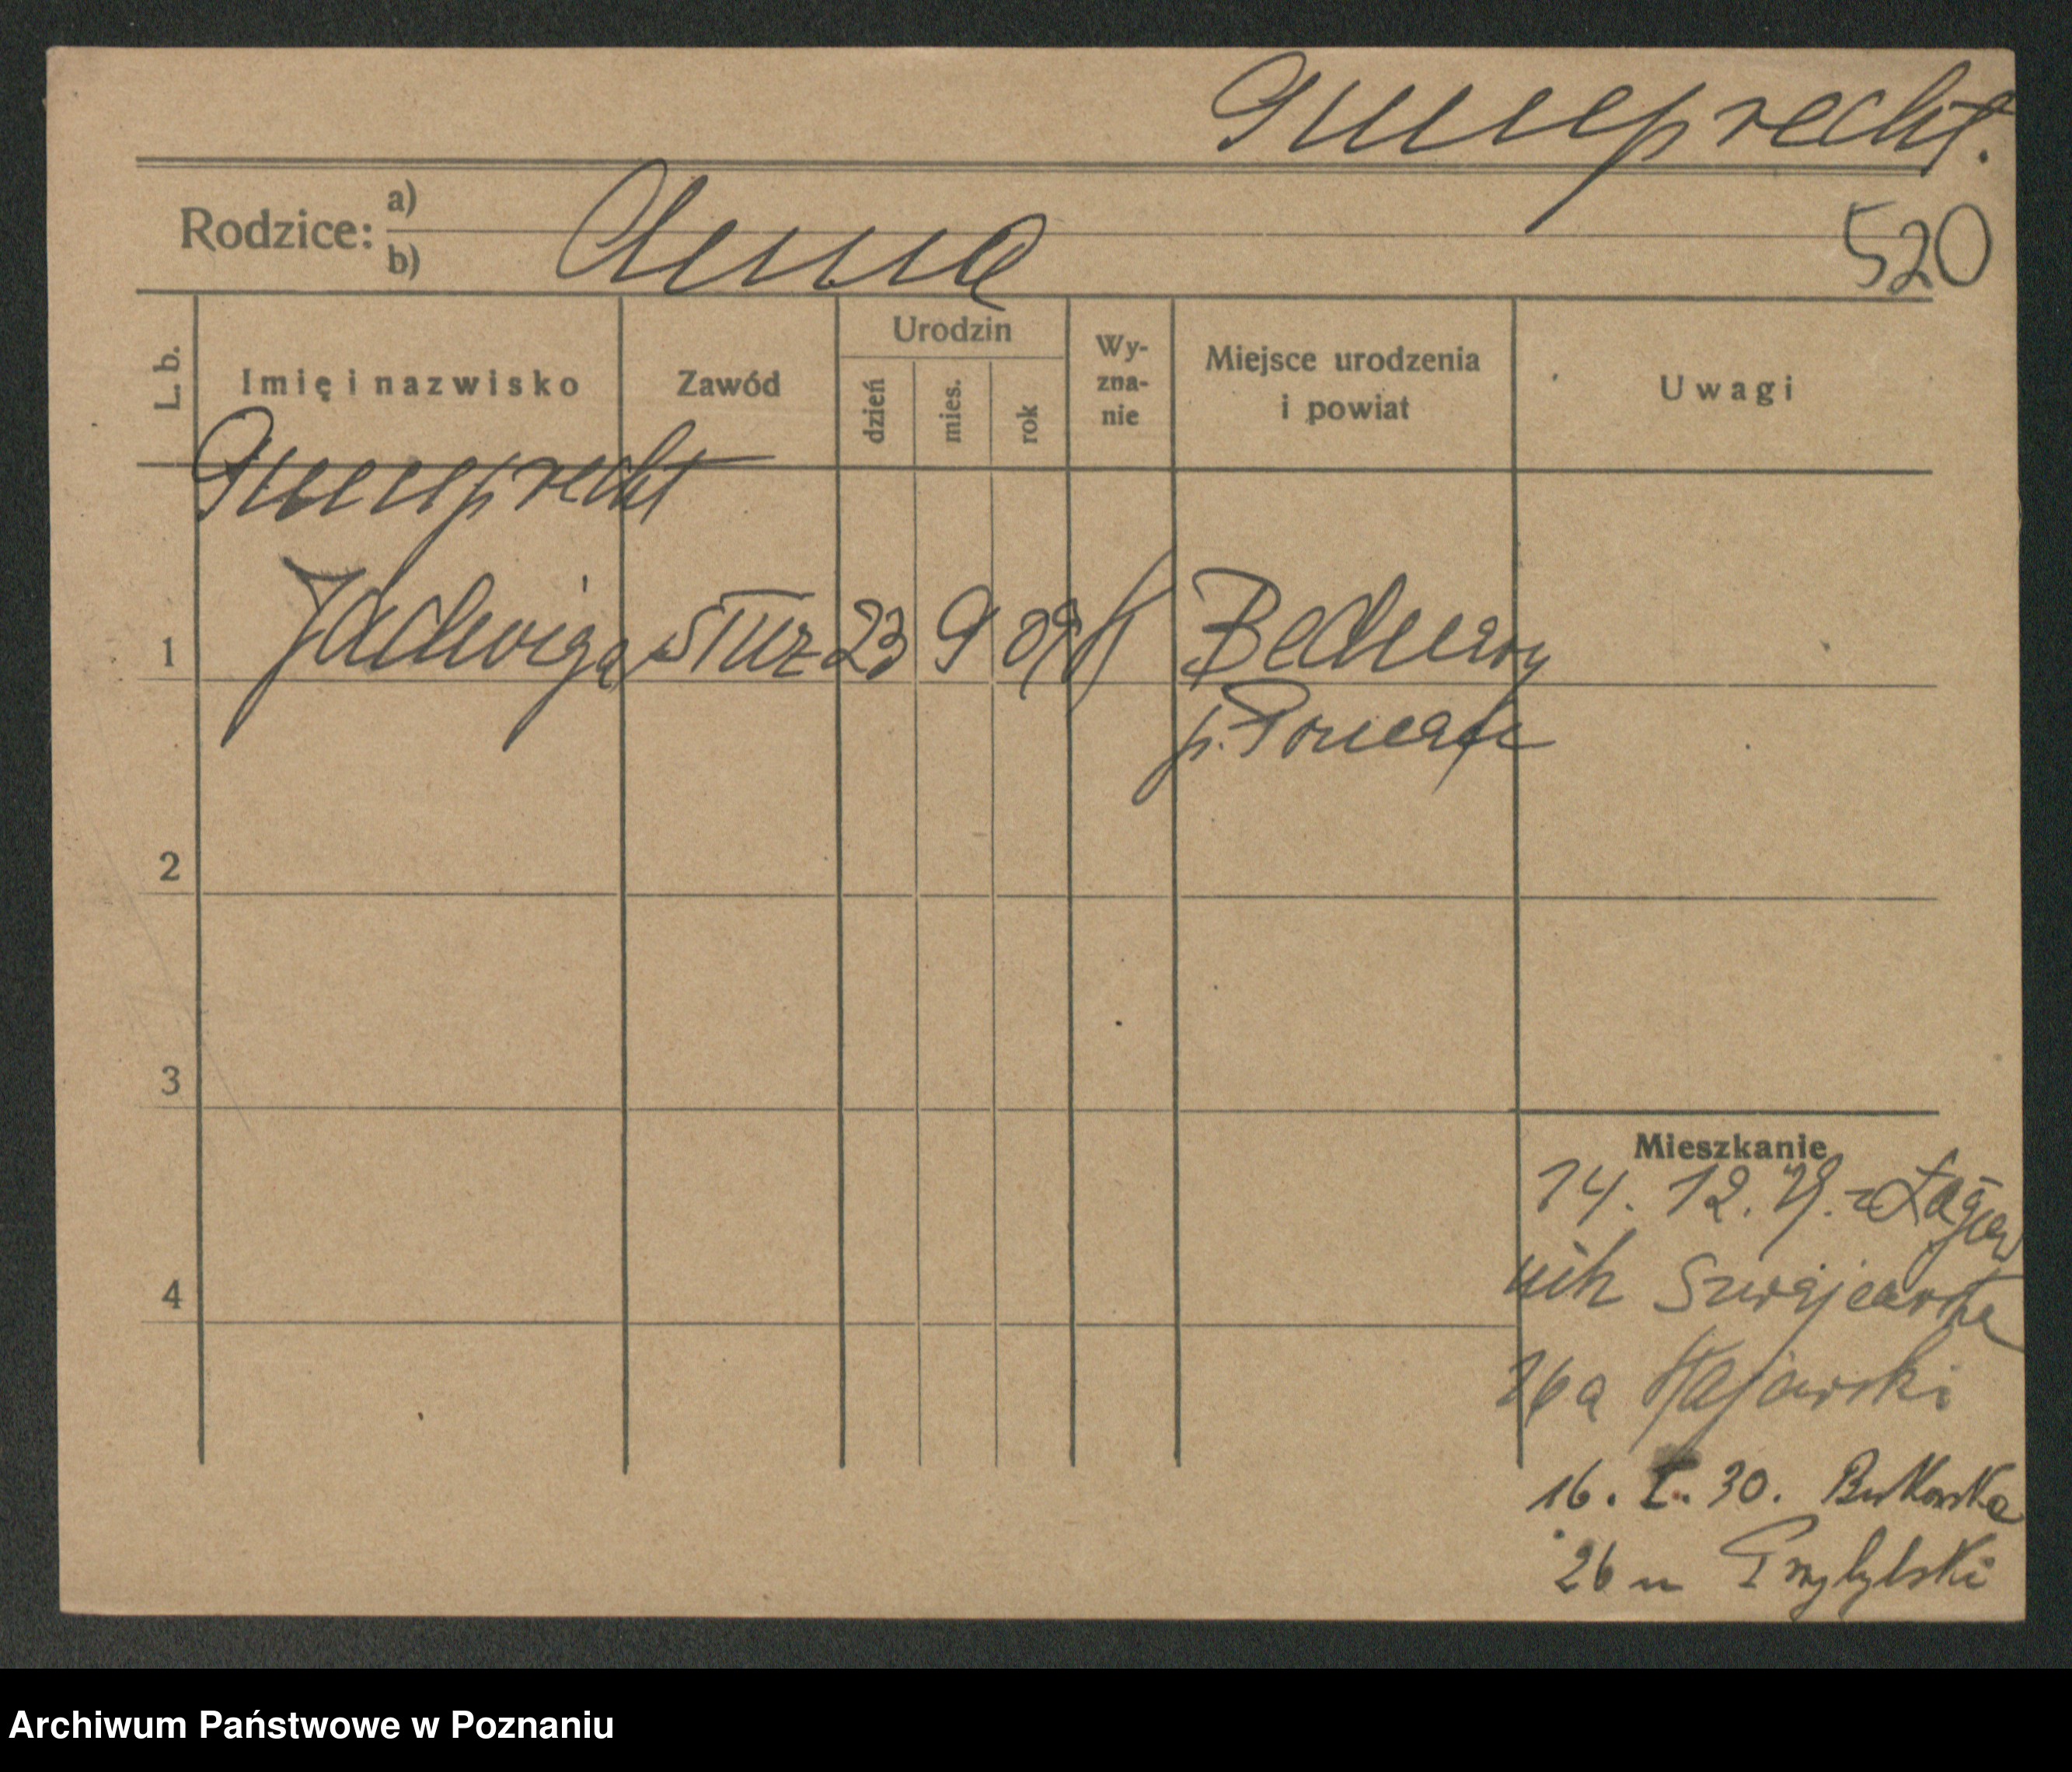 Gumprecht.
Rodzice: a)
b) Anna
520
L. b.
Imię i nazwisko
Zawód
Urodzin
dzień
mies.
rok
Wy-
zna-
nie
Miejsce urodzenia
i powiat
Uwagi
Gumprecht
1 Jadwiga służ 23 9 09 k Bednary
p. Poznań
2
3
4
Mieszkanie
14. 12. 29. z Łagiew
nik Szwajcarska
16a Majewski
16. I. 30. Bukowska
26 u Przybylski
Archiwum Państwowe w Poznaniu